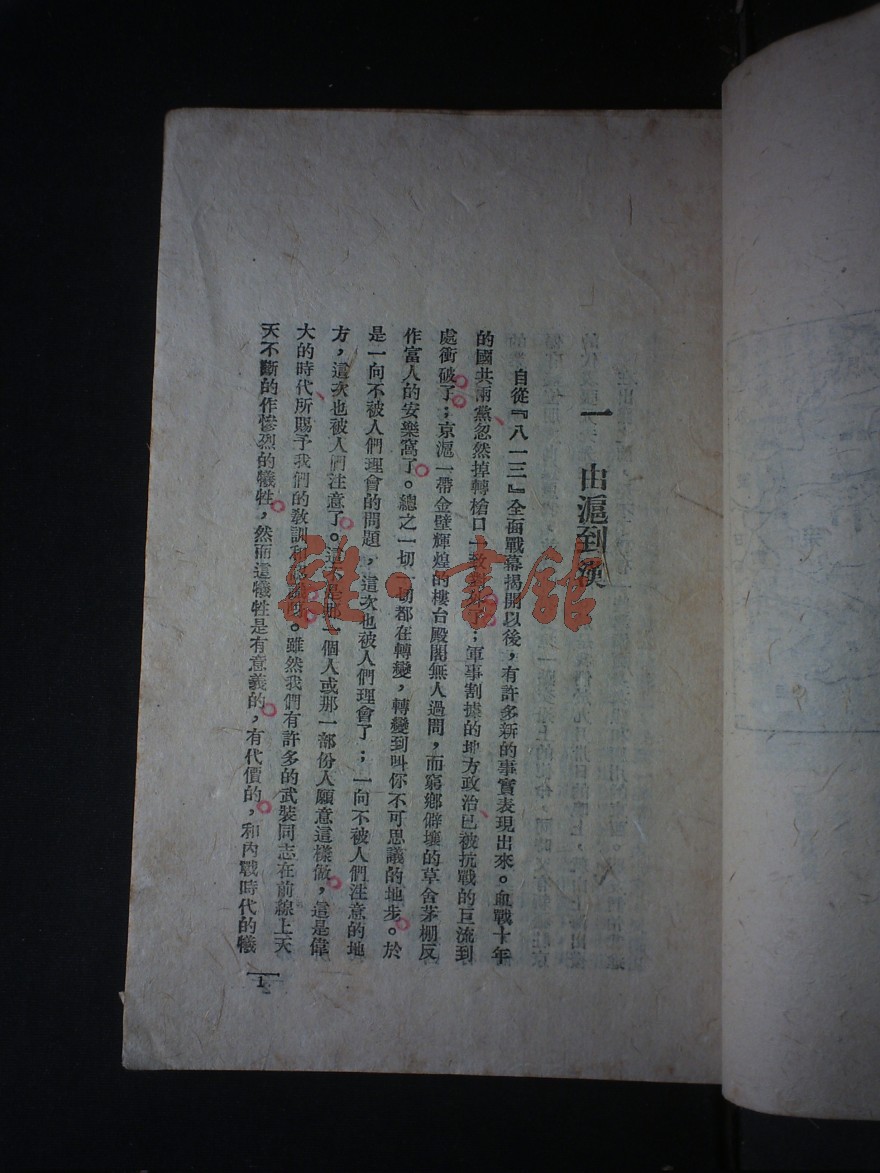 一 由滬到漢
自從『八一三』全面戰幕揭開以後，有許多新的事實表現出來。血戰十年
的國共兩黨忽然掉轉槍口一致對外了；軍事割據的地方政治已被抗戰的巨流到
處衝破了；京滬一帶金壁輝煌的樓台殿閣無人過問，而窮鄉僻壤的草舍茅棚反
作富人的安樂窩了。總之一切一切都在轉變，轉變到叫你不可思議的地步。於
是一向不被人們理會的問題，這次也被人們理會了；一向不被人們注意的地
方，這次也被人們注意了。這不是那一個人或那一部份人願意這樣做，這是偉
大的時代所賜予我們的教訓和。雖然我們有許多的武裝同志在前線上天
天不斷的作慘烈的犧牲，然而這犧牲是有意義的，有代價的，和內戰時代的犧
1
雜·書館